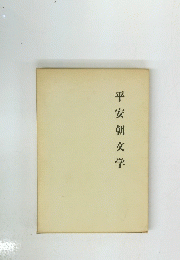 平安朝文学